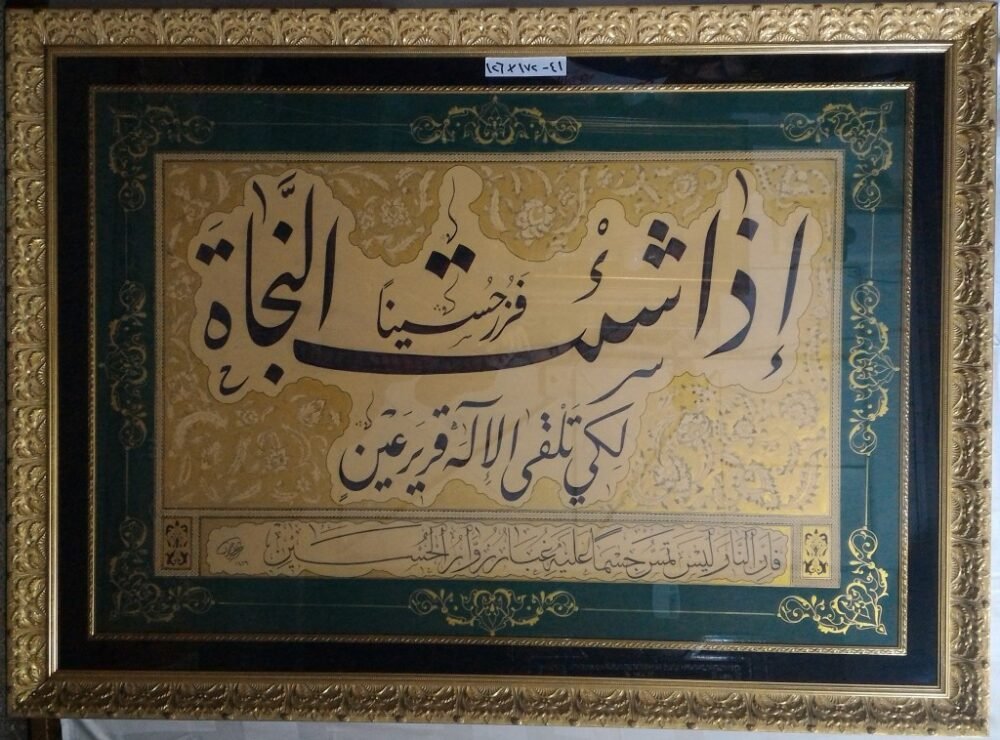 ٤١-١٧٢×١٢٦
إِذا شئْت النَّجَاةَ
فَزُرْ حُسيناً
لِكَي تَلْقى الإلٰهَ قَرِيرَ عَيْنٍ
فَإن النارَ لَيسَ تمَسّ جسْماً عَلَيْهِ غبَارُ زُوّارِ الحُسَيْن